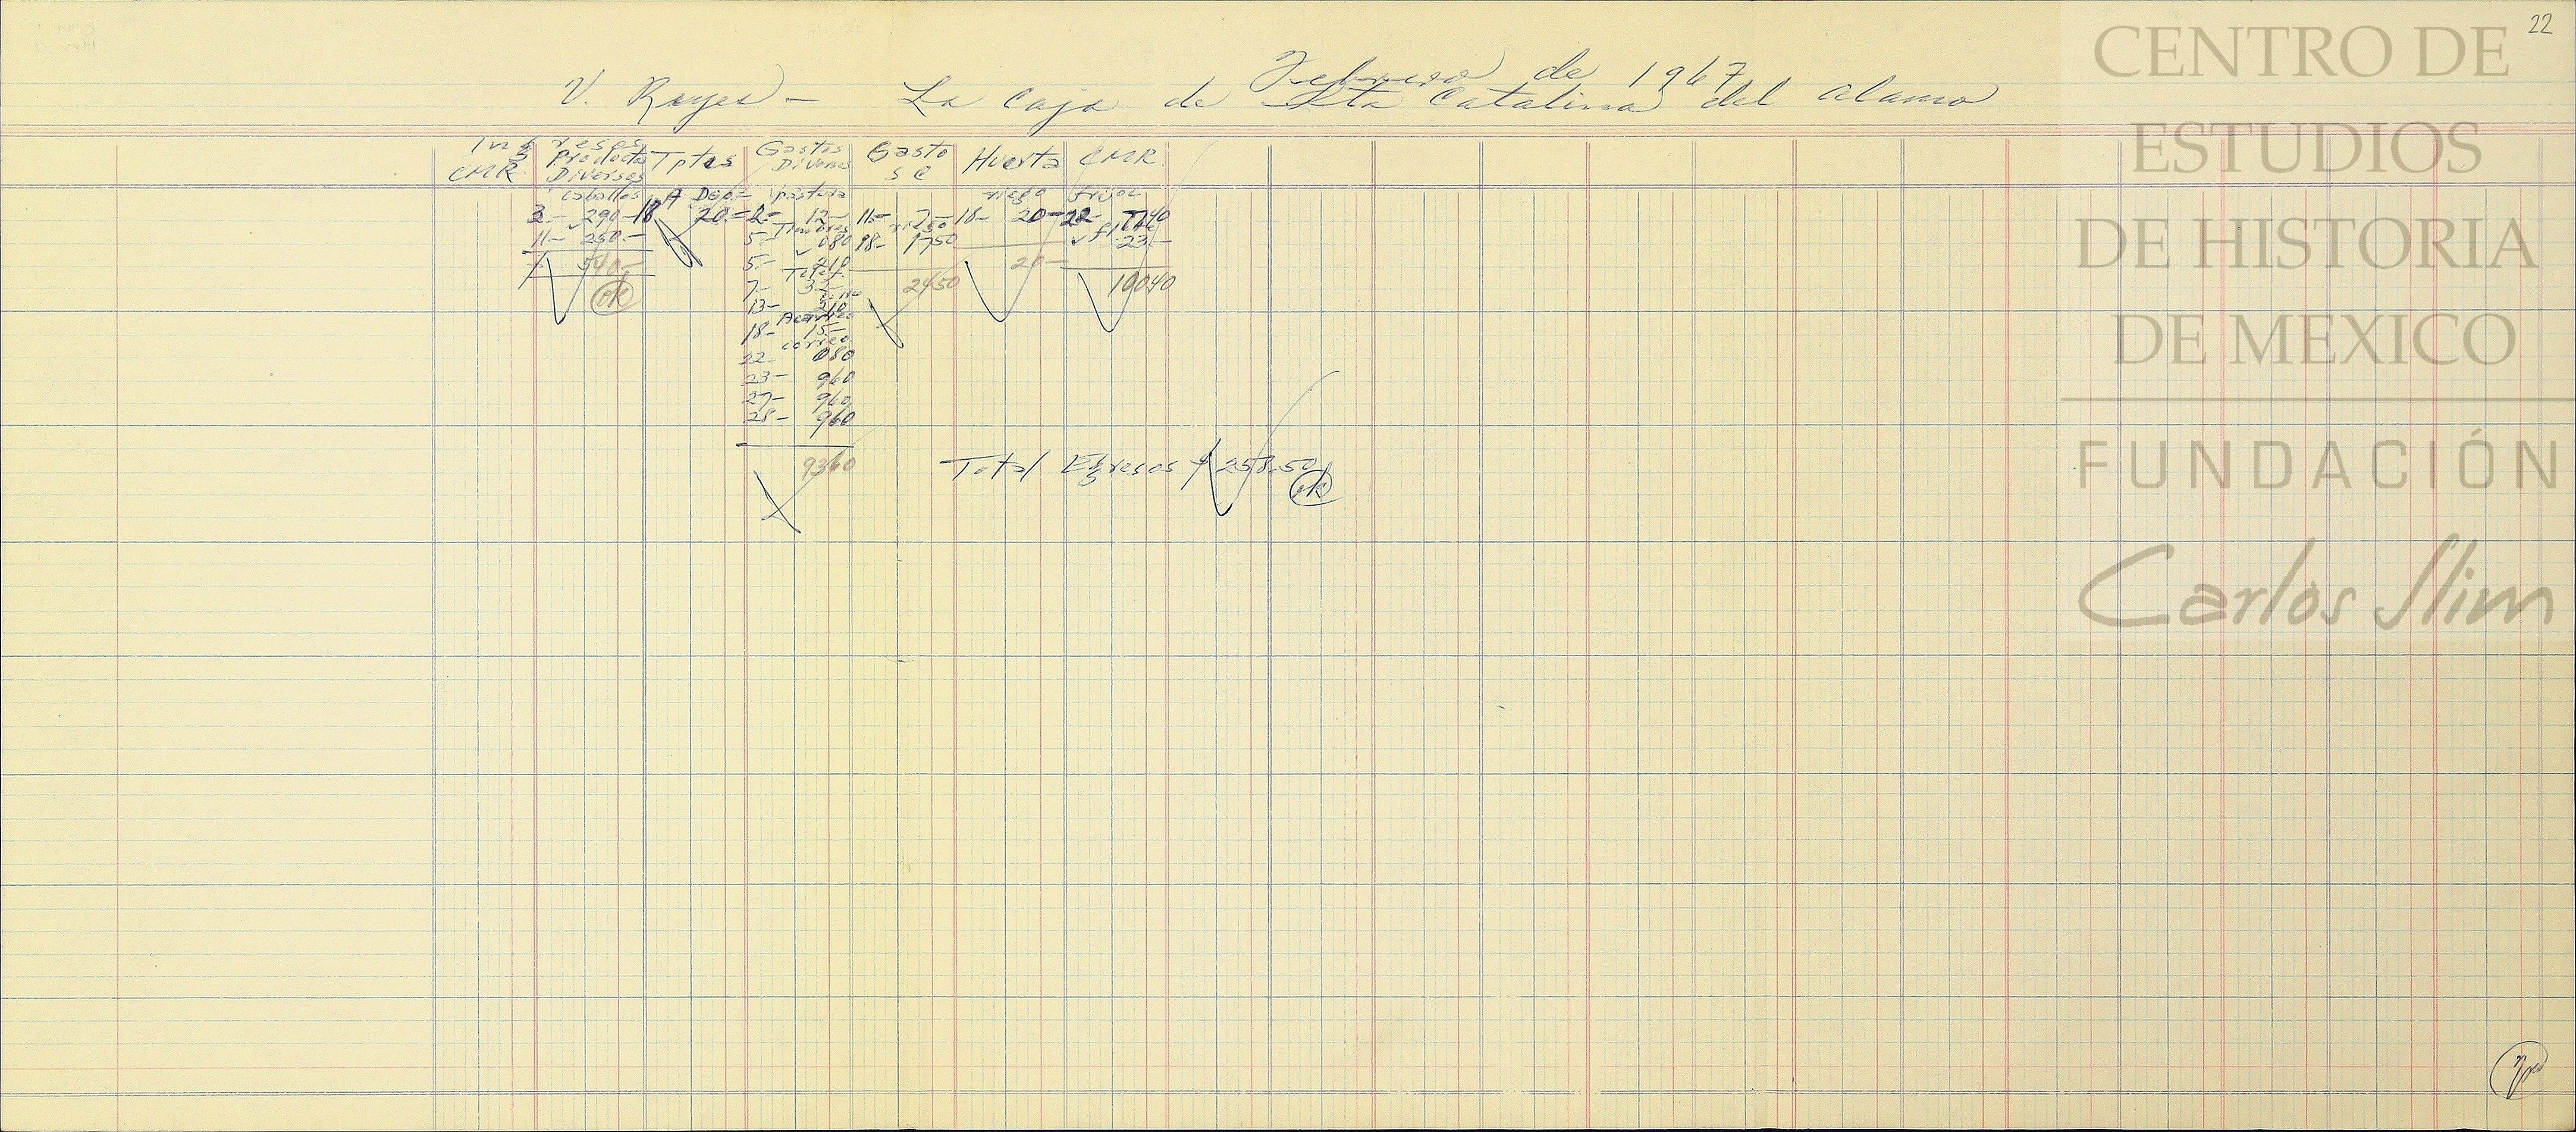 22
Febrero de 1967
V. Reyes - La Caja de Sta Catalina del Alamo
Ingresos
CMR.
Producto Diversos
Tptes
Gastos Diversos
Gasto S C
Huerta
CMR.
caballos
A Dep.-
pastura
riego
frijol
3- 290- 18 20.- 2- 12- 11- 7- 18- 20- 22- 7740
Timbres
flete
11- 250.- 5- 080 18- 1750 23-
540.- 5- 210 20-
ok
Telef.
7- 32- 2450 10040
13- 210
Acarreo
18- 15-
correo
22- 080
23- 960
27- 960
28- 960
9360
Total Egresos $ 258.50
ok
CENTRO DE
ESTUDIOS
DE HISTORIA
DE MEXICO
FUNDACIÓN
Carlos Slim